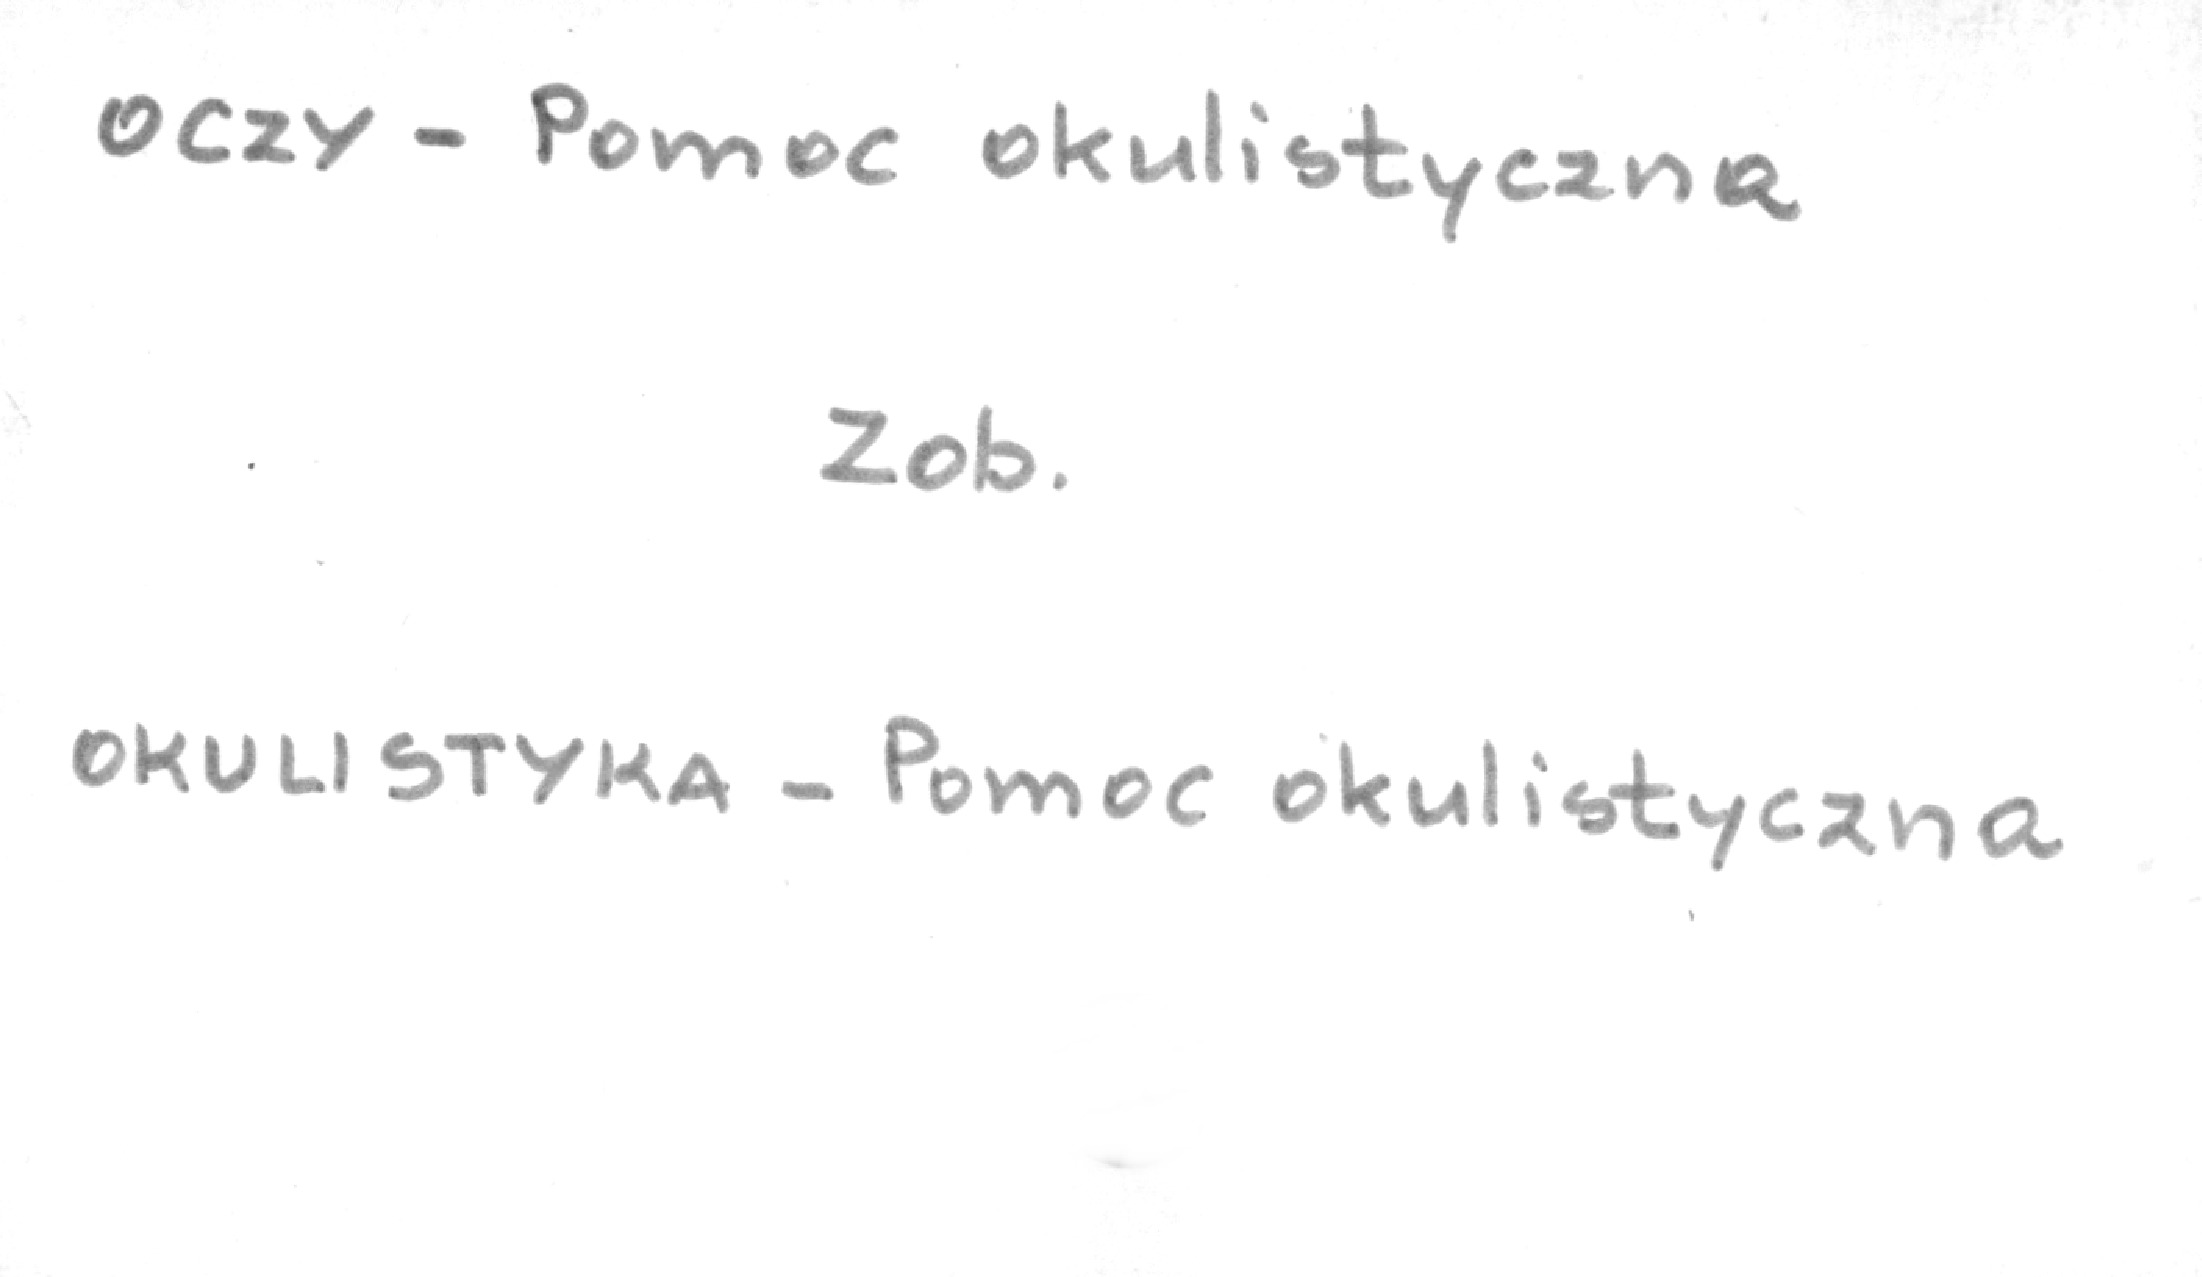 OCZY - Pomoc okulistyczna
Zob.
OKULISTYKA - Pomoc okulistyczna